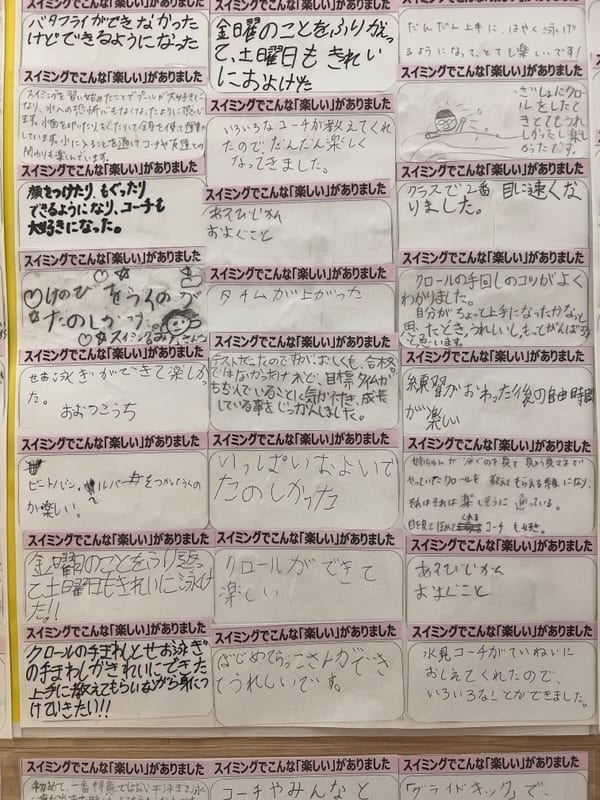 バタフライができなかった
けどできるようになった
スイミングでこんな「楽しい」がありました
スイミングを習い始めたことでプールが大好きに
なり、水への恐怖心もなくなったように感じ
ます。
しています。水に入ることを通じてコーチや友達との
関わりも楽しんでいます。
スイミングでこんな「楽しい」がありました
顔をつけたり、もぐったり
できるようになり、コーチも
大好きになった。
スイミングでこんな「楽しい」がありました
けのびをうくのが
たのしかった
スイミング
スイミングでこんな「楽しい」がありました
せお泳ぎができて楽しかっ
た。
スイミングでこんな「楽しい」がありました
ビートバン、
が楽しい。
スイミングでこんな「楽しい」がありました
金曜日のことをふり返っ
て土曜日もきれいに泳げ
た!!
スイミングでこんな「楽しい」がありました
クロールの手まわしとせお泳ぎ
の手まわしがきれいにできた
上手に教えてもらいながら身につ
けていきたい!!
金曜のことをふりかえっ
て、土曜日もきれい
におよげた
スイミングでこんな「楽しい」がありました
いろいろなコーチが教えてくれ
たのでだんだん楽しく
なってきました。
スイミングでこんな「楽しい」がありました
あそびじかん
およぐこと
スイミングでこんな「楽しい」がありました
タイムが上がった
スイミングでこんな「楽しい」がありました
テストだったのですが、おしくも、合格
ではなかったけれど、目標タイムが
ちぢんでいることに気が付き、成長
している事をじっかんしました。
スイミングでこんな「楽しい」がありました
いっぱいおよいで
たのしかった
スイミングでこんな「楽しい」がありました
クロールができて
楽しい
スイミングでこんな「楽しい」がありました
はじめて
てうれしいです。
だんだん上手に、はやく泳げ
るようになって、とても楽しいです!
スイミングでこんな「楽しい」がありました
さいしょにクロ
ールをしたと
きとてもうれ
しかったし楽し
かったです。
スイミングでこんな「楽しい」がありました
クラスで2番目に速くな
りました。
スイミングでこんな「楽しい」がありました
クロールの手回しのコツがよく
わかりました。
自分がちょっと上手になったかなって
思ったとき、うれしいし、もっとがんばろう
と思います。
スイミングでこんな「楽しい」がありました
練習がおわった後の自由時間
が楽しい
スイミングでこんな「楽しい」がありました
姉ちゃんが泳ぐのを見て見よう見マネで
やっていたクロールを教えてもらえる年長になり、
それはそれは楽しそうに通っている。
コーチも好き。
スイミングでこんな「楽しい」がありました
あそびじかん
およぐこと
スイミングでこんな「楽しい」がありました
水見コーチがていねいに
おしえてくれたので、
いろいろなことができました。
スイミングでこんな「楽しい」がありました
スイミングでこんな「楽しい」がありました
コーチやみんなと
スイミングでこんな「楽しい」がありました
「グライドキック」で、